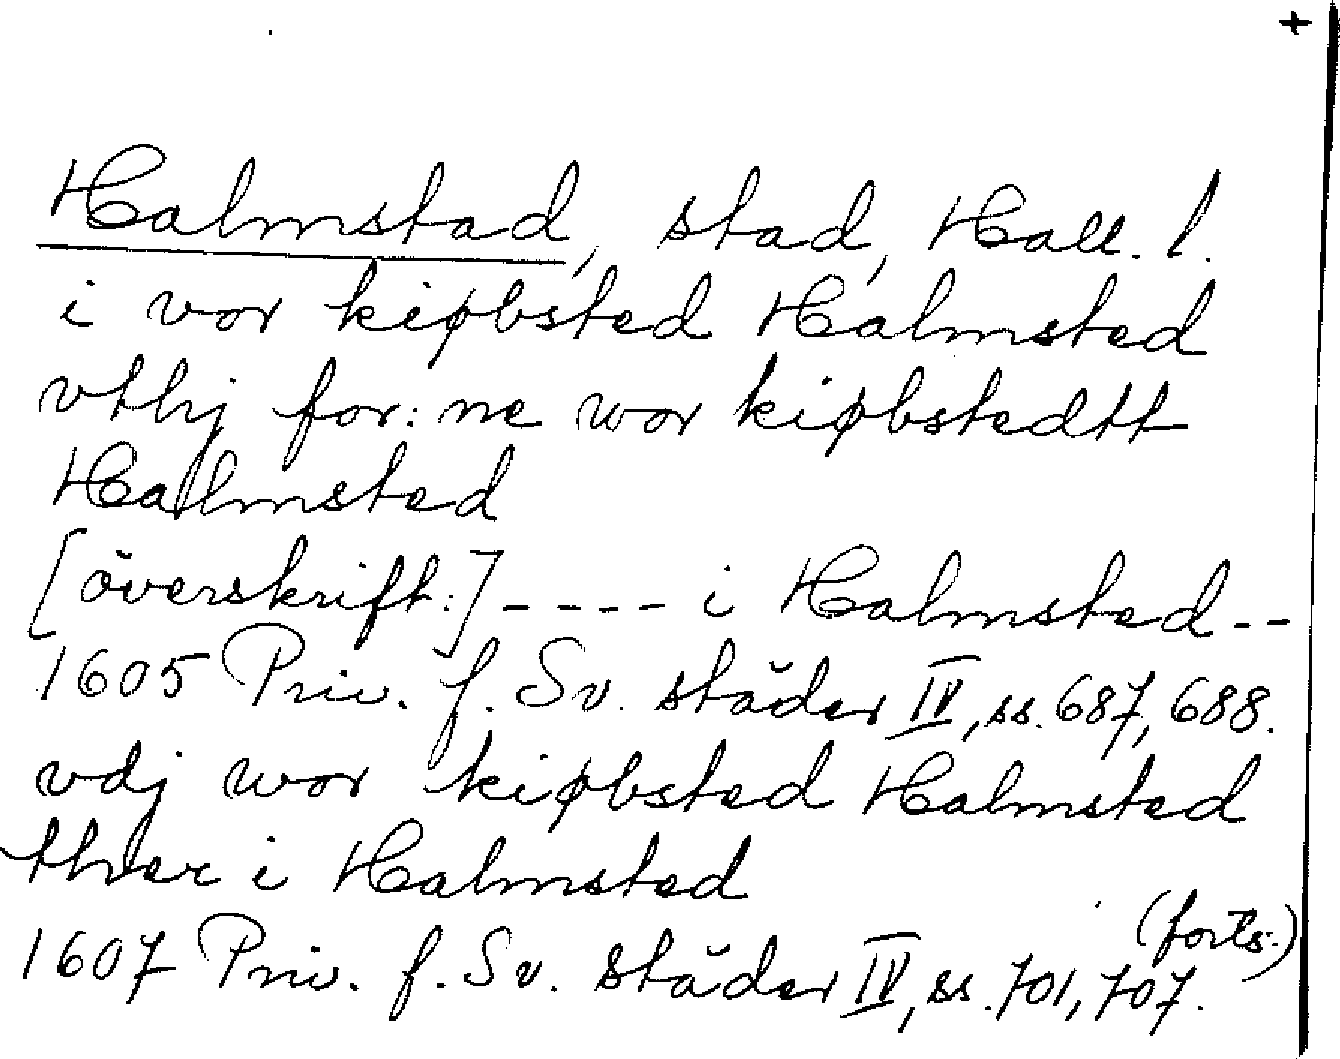 +
Halmstad, stad, Hall. l.
i vor kiøbsted Halmsted
vthj for:ne wor kiøbstedtt
Halmsted
[överskrift:] ---- i Halmsted --
1605 Priv. f. Sv. städer IV, ss. 687, 688.
vdj wor kiøbsted Halmsted
ther i Halmsted
(forts.)
1607 Priv. f. Sv. städer IV, ss. 701, 707.